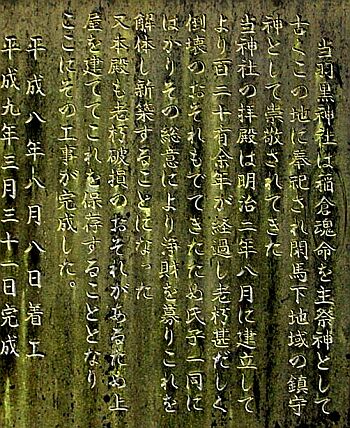 当羽黒神社は稲倉魂命を主祭神として
古くこの地に奉祀され閑馬下地域の鎮守
神として崇敬されてきた
当神社の拝殿は明治二年八月に建立して
より百二十有余年が経過し老朽甚だしく
倒壊のおそれもでてきたため氏子一同に
はかりその総意により浄財を募りこれを
解体し新築することになった
又本殿も老朽破損のおそれがあるため上
屋を建ててこれを保存することとなり
ここにその工事が完成した。
平成八年八月八日着工
平成九年三月三十一日完成